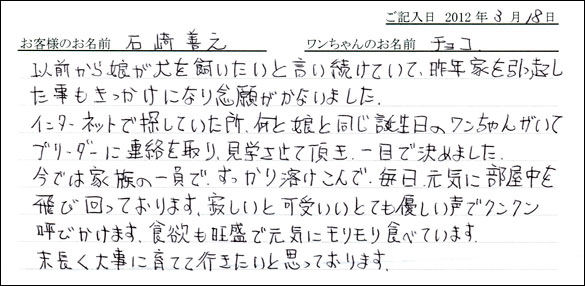 ご記入日 2012年3月18日
お客様のお名前 石崎善之 ワンちゃんのお名前 チョコ
以前から娘が犬を飼いたいと言い続けていて、昨年家を引っ越し
た事もきっかけになり念願がかないました。
インターネットで探していた所、何と娘と同じ誕生日のワンちゃんがいて
ブリーダーに連絡を取り、見学させて頂き、一目で決めました。
今では家族の一員で、すっかり溶けこんで、毎日、元気に部屋中を
飛び回っております。寂しいと可愛いいとても優しい声でクンクン
呼びかけます。食欲も旺盛で元気にモリモリ食べています。
末長く大事に育てて行きたいと思っております。